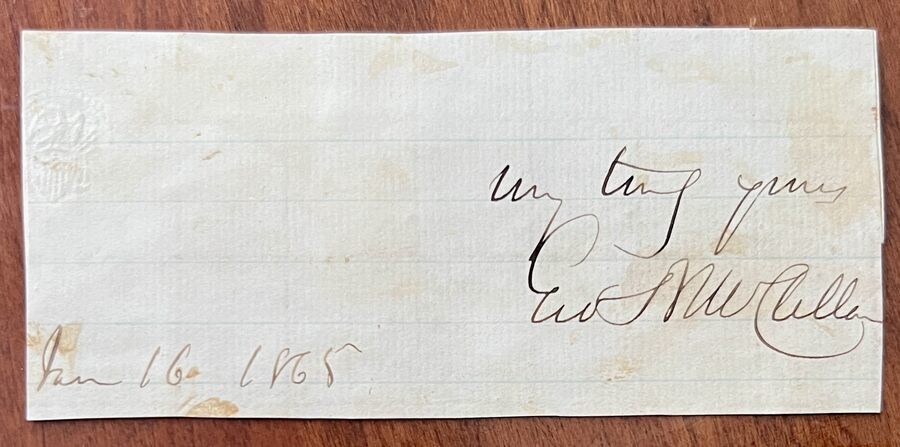 very truly yours
Geo B McClellan
Jan 16 1865